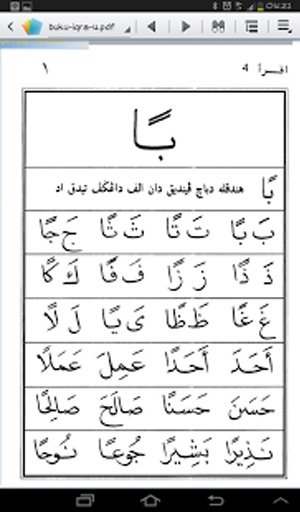 buku-iqra-u.pdf
اقرأ 4 ١
بًا
بًا هندقله دباچ ڤينديق دان الف داڠݢڤ تيدق اد
بَ بًا تَ تًا ثَ ثًا جَ جًا
ذَ ذًا زَ زًا فَ فًا كَ كًا
غَ غًا ظَ ظًا يَ يًا لَ لًا
أَحَدَ أَحَدًا عَمِلَ عَمَلًا
حَسَنَ حَسَنًا صَالَحَ صَالِحًا
نَذِيْرًا بَشِيْرًا جُوعًا نُوحًا